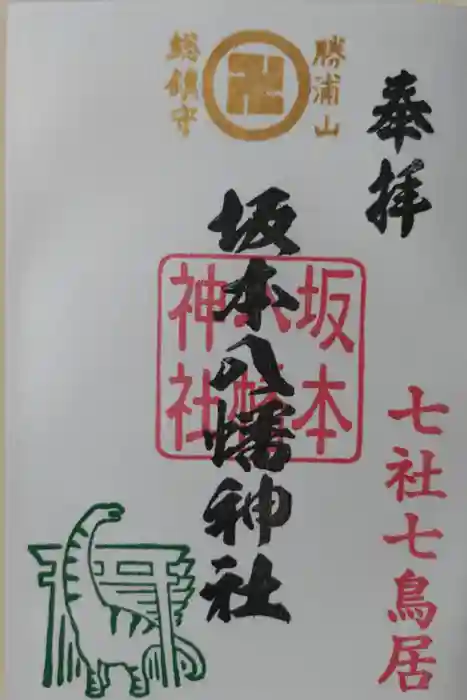 奉拝
勝浦山
総鎮守
坂本八幡神社
坂本八幡神社
七社七鳥居